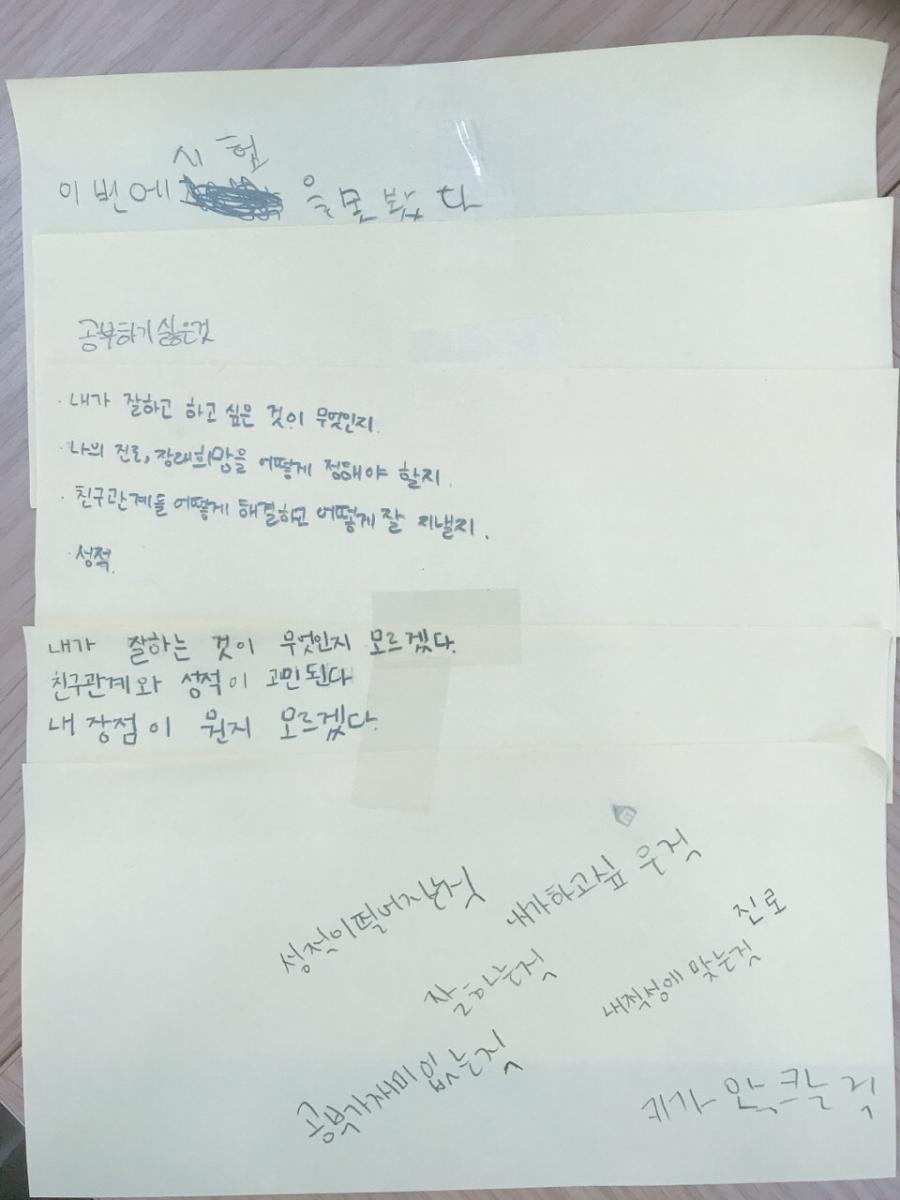 시험
이번에 을 못 봤다
공부하기 싫은것
· 내가 잘하고 하고 싶은 것이 무엇인지.
· 나의 진로, 장래희망을 어떻게 정해야 할지.
· 친구관계를 어떻게 해결하고 어떻게 잘 지낼지.
· 성적.
내가 잘하는 것이 무엇인지 모르겠다.
친구관계와 성적이 고민된다
내 장점이 뭔지 모르겠다.
성적이떨어지는것
내가하고싶은것
진로
잘하는것
내적성에 맞는것
공부가재미없는것
키가 안크는것